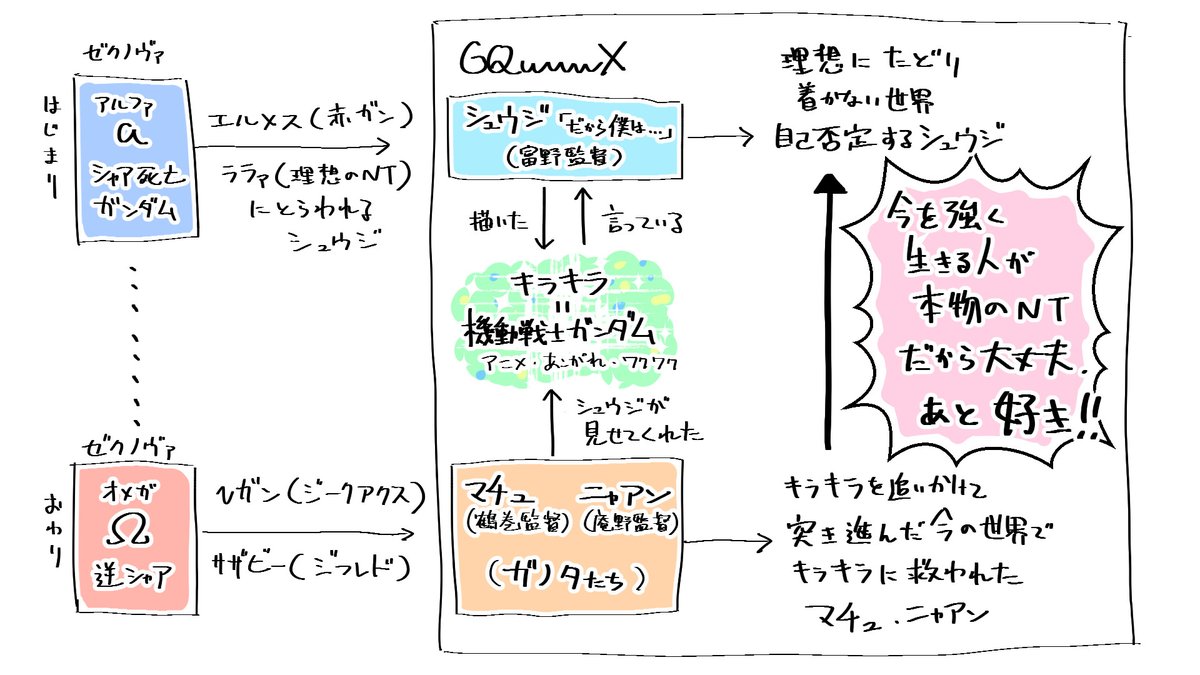 ゼクノヴァ
はじまり
アルファ
a
シャア死亡
ガンダム
エルメス(赤ガン)
ララァ(理想のNT)
にとらわれる
シュウジ
GQuuuuuuX
シュウジ「だから僕は…」
(富野監督)
理想にたどり
着かない世界
自己否定するシュウジ
描いた
言っている
キラキラ
=
機動戦士ガンダム
アニメ・あこがれ・ワクワク
シュウジが
見せてくれた
今を強く
生きる人が
本物のNT
だから大丈夫.
あと好き!!
ゼクノヴァ
おわり
オメガ
Ω
逆シャア
νガン(ジークアクス)
サザビー(ジフレド)
マチュ ニャアン
(鶴巻監督) (庵野監督)
(ガノタたち)
キラキラを追いかけて
突き進んだ今の世界で
キラキラに救われた
マチュ.ニャアン